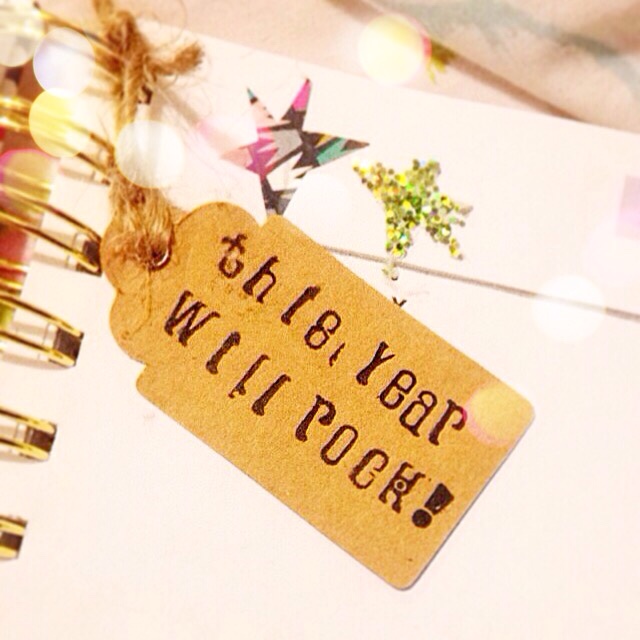 this year
will rock!